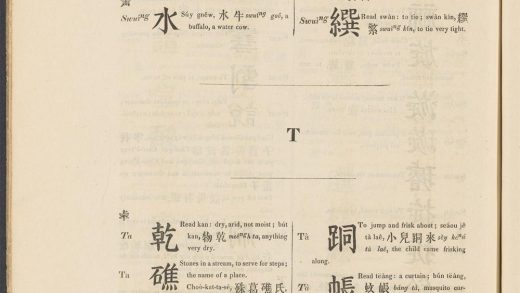 Swuiⁿg 水 Súy gnêw, 水牛 swuíⁿg goô, a
buffalo, a water cow.
Swuiⁿg 繏 Read swàn: to tie; swàn kín, 繆
swuìⁿg kín, to tie very tight.
T
Ta 乾 Read kan: dry, arid, not moist; but
kan, 物乾 ta, anything
very dry.
Ta 礁 Stones in a stream, to serve for steps;
the name of a place.
Choó-kat-ta-sé, 葛礁氏
Tà To jump and frisk about; seáou jê
tà laê, 小兒 來 sëy këⁿá
tà laê, the child came frisking
along.
Tà 帳 Read tëàng: a curtain; bûn tëàng,
蚊帳 báng tà, mosquito cur-